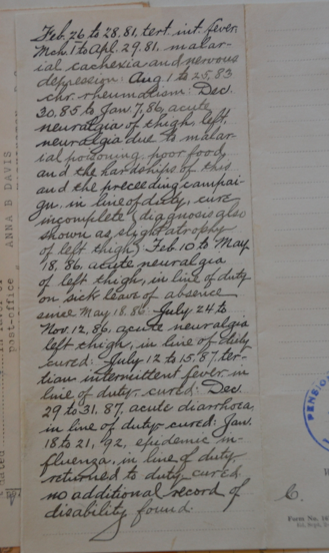 Feb. 26 to 28. 81, tert. int. fever.
Mch. 1 to Apl. 29. 81, malar-
ial cachexia and nervous
depression: Aug 1 to 25, 83
chr. rheumatism: Dec.
30, 85 to Jan 7, 86, acute
neuralgia of thigh, left,
neuralgia due to malar-
ial poisoning, poor food,
and the hardships of this
and the preceeding campai-
gn. in line of duty, cure
incomplete (diagnosis also
shown as slight atrophy
of left thigh): Feb. 10 to May
18, 86, acute neuralgia
of left thigh, in line of duty
on sick leave of absence
since May 18. 86: July 24 to
Nov. 12, 86, acute neuralgia
left thigh, in line of duty
cured: July 12 to 15. 87, ter-
tian intermittent fever, in
line of duty. cured: Dec.
29 to 31. 87, acute diarrhoea,
in line of duty. cured: Jan.
18 to 21, 92, epidemic in-
fluenza, in line of duty
returned to duty cured
no additional record of
disability found.
ANNA B DAVIS
post-office
PENSION
C.
Form No.